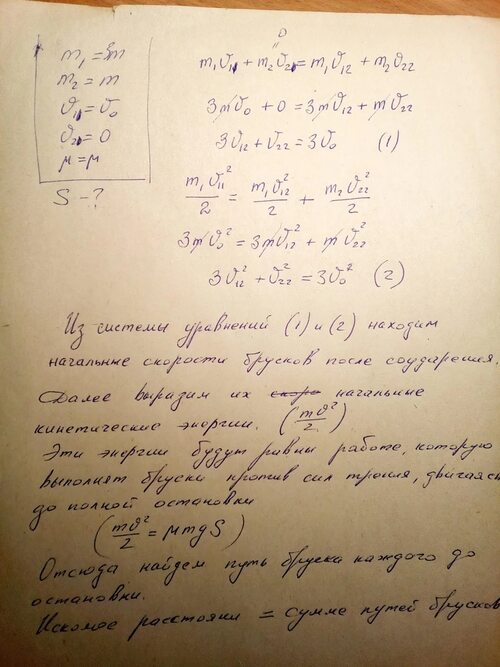 m₁ = 3m
m₂ = m
ϑ₁₁ = ϑ₀
ϑ₂₁ = 0
μ = μ
S - ?
0
m₁ϑ₁₁ + m₂ϑ₂₁ = m₁ϑ₁₂ + m₂ϑ₂₂
3mϑ₀ + 0 = 3mϑ₁₂ + mϑ₂₂
3ϑ₁₂ + ϑ₂₂ = 3ϑ₀ (1)
m₁ϑ₁₁²/2 = m₁ϑ₁₂²/2 + m₂ϑ₂₂²/2
3mϑ₀² = 3mϑ₁₂² + mϑ₂₂²
3ϑ₁₂² + ϑ₂₂² = 3ϑ₀² (2)
Из системы уравнений (1) и (2) находим
начальные скорости брусков после соударения.
Далее выразим их начальные
кинетические энергии. (mϑ²/2)
Эти энергии будут равны работе, которую
выполнят бруски против сил трения, двигаясь
до полной остановки
(mϑ²/2 = μmgS)
Отсюда найдем путь бруска каждого до
остановки.
Искомое расстояни = сумме путей брусков